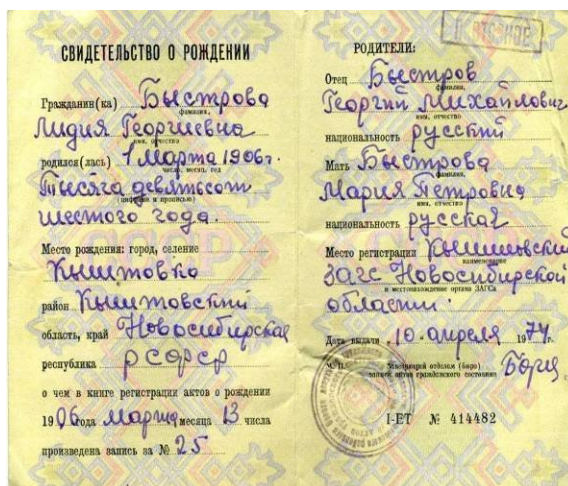 СВИДЕТЕЛЬСТВО О РОЖДЕНИИ
Гражданин(ка) Быстрова
фамилия,
Лидия Георгиевна
имя, отчество
родился(лась) 1 марта 1906г.
число, месяц, год
Тысяча девятьсот
(цифрами и прописью)
шестого года.
Место рождения: город, селение
Кыштовка
район Кыштовский
область, край Новосибирская
республика РСФСР
о чем в книге регистрации актов о рождении
1906 года марта месяца 13 числа
произведена запись за № 25
РОДИТЕЛИ:
Отец Быстров
фамилия,
Георгий Михайлович
имя, отчество
национальность русский
Мать Быстрова
фамилия,
Мария Петровна
имя, отчество
национальность русская
Место регистрации Кыштовский
наименование
ЗАГС Новосибирской
и местонахождение органа ЗАГСа
области.
Дата выдачи 10 апреля 1974г.
М. П. Заведующий отделом (бюро)
записи актов гражданского состояния
I-ЕТ № 414482